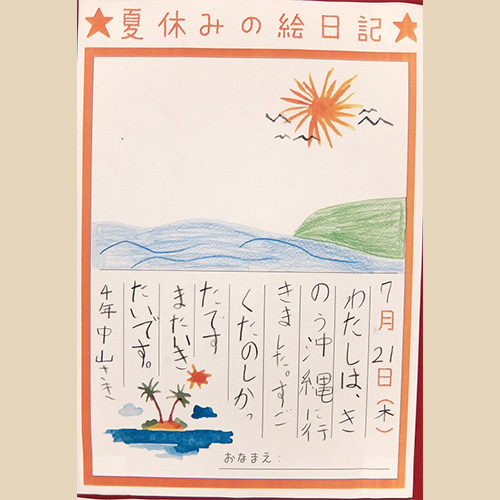 ★夏休みの絵日記★
7月21日(木)
わたしは、き
のう沖縄に行
きました。すご
くたのしかっ
たです
またいき
たいです。
4年中山さき
おなまえ: